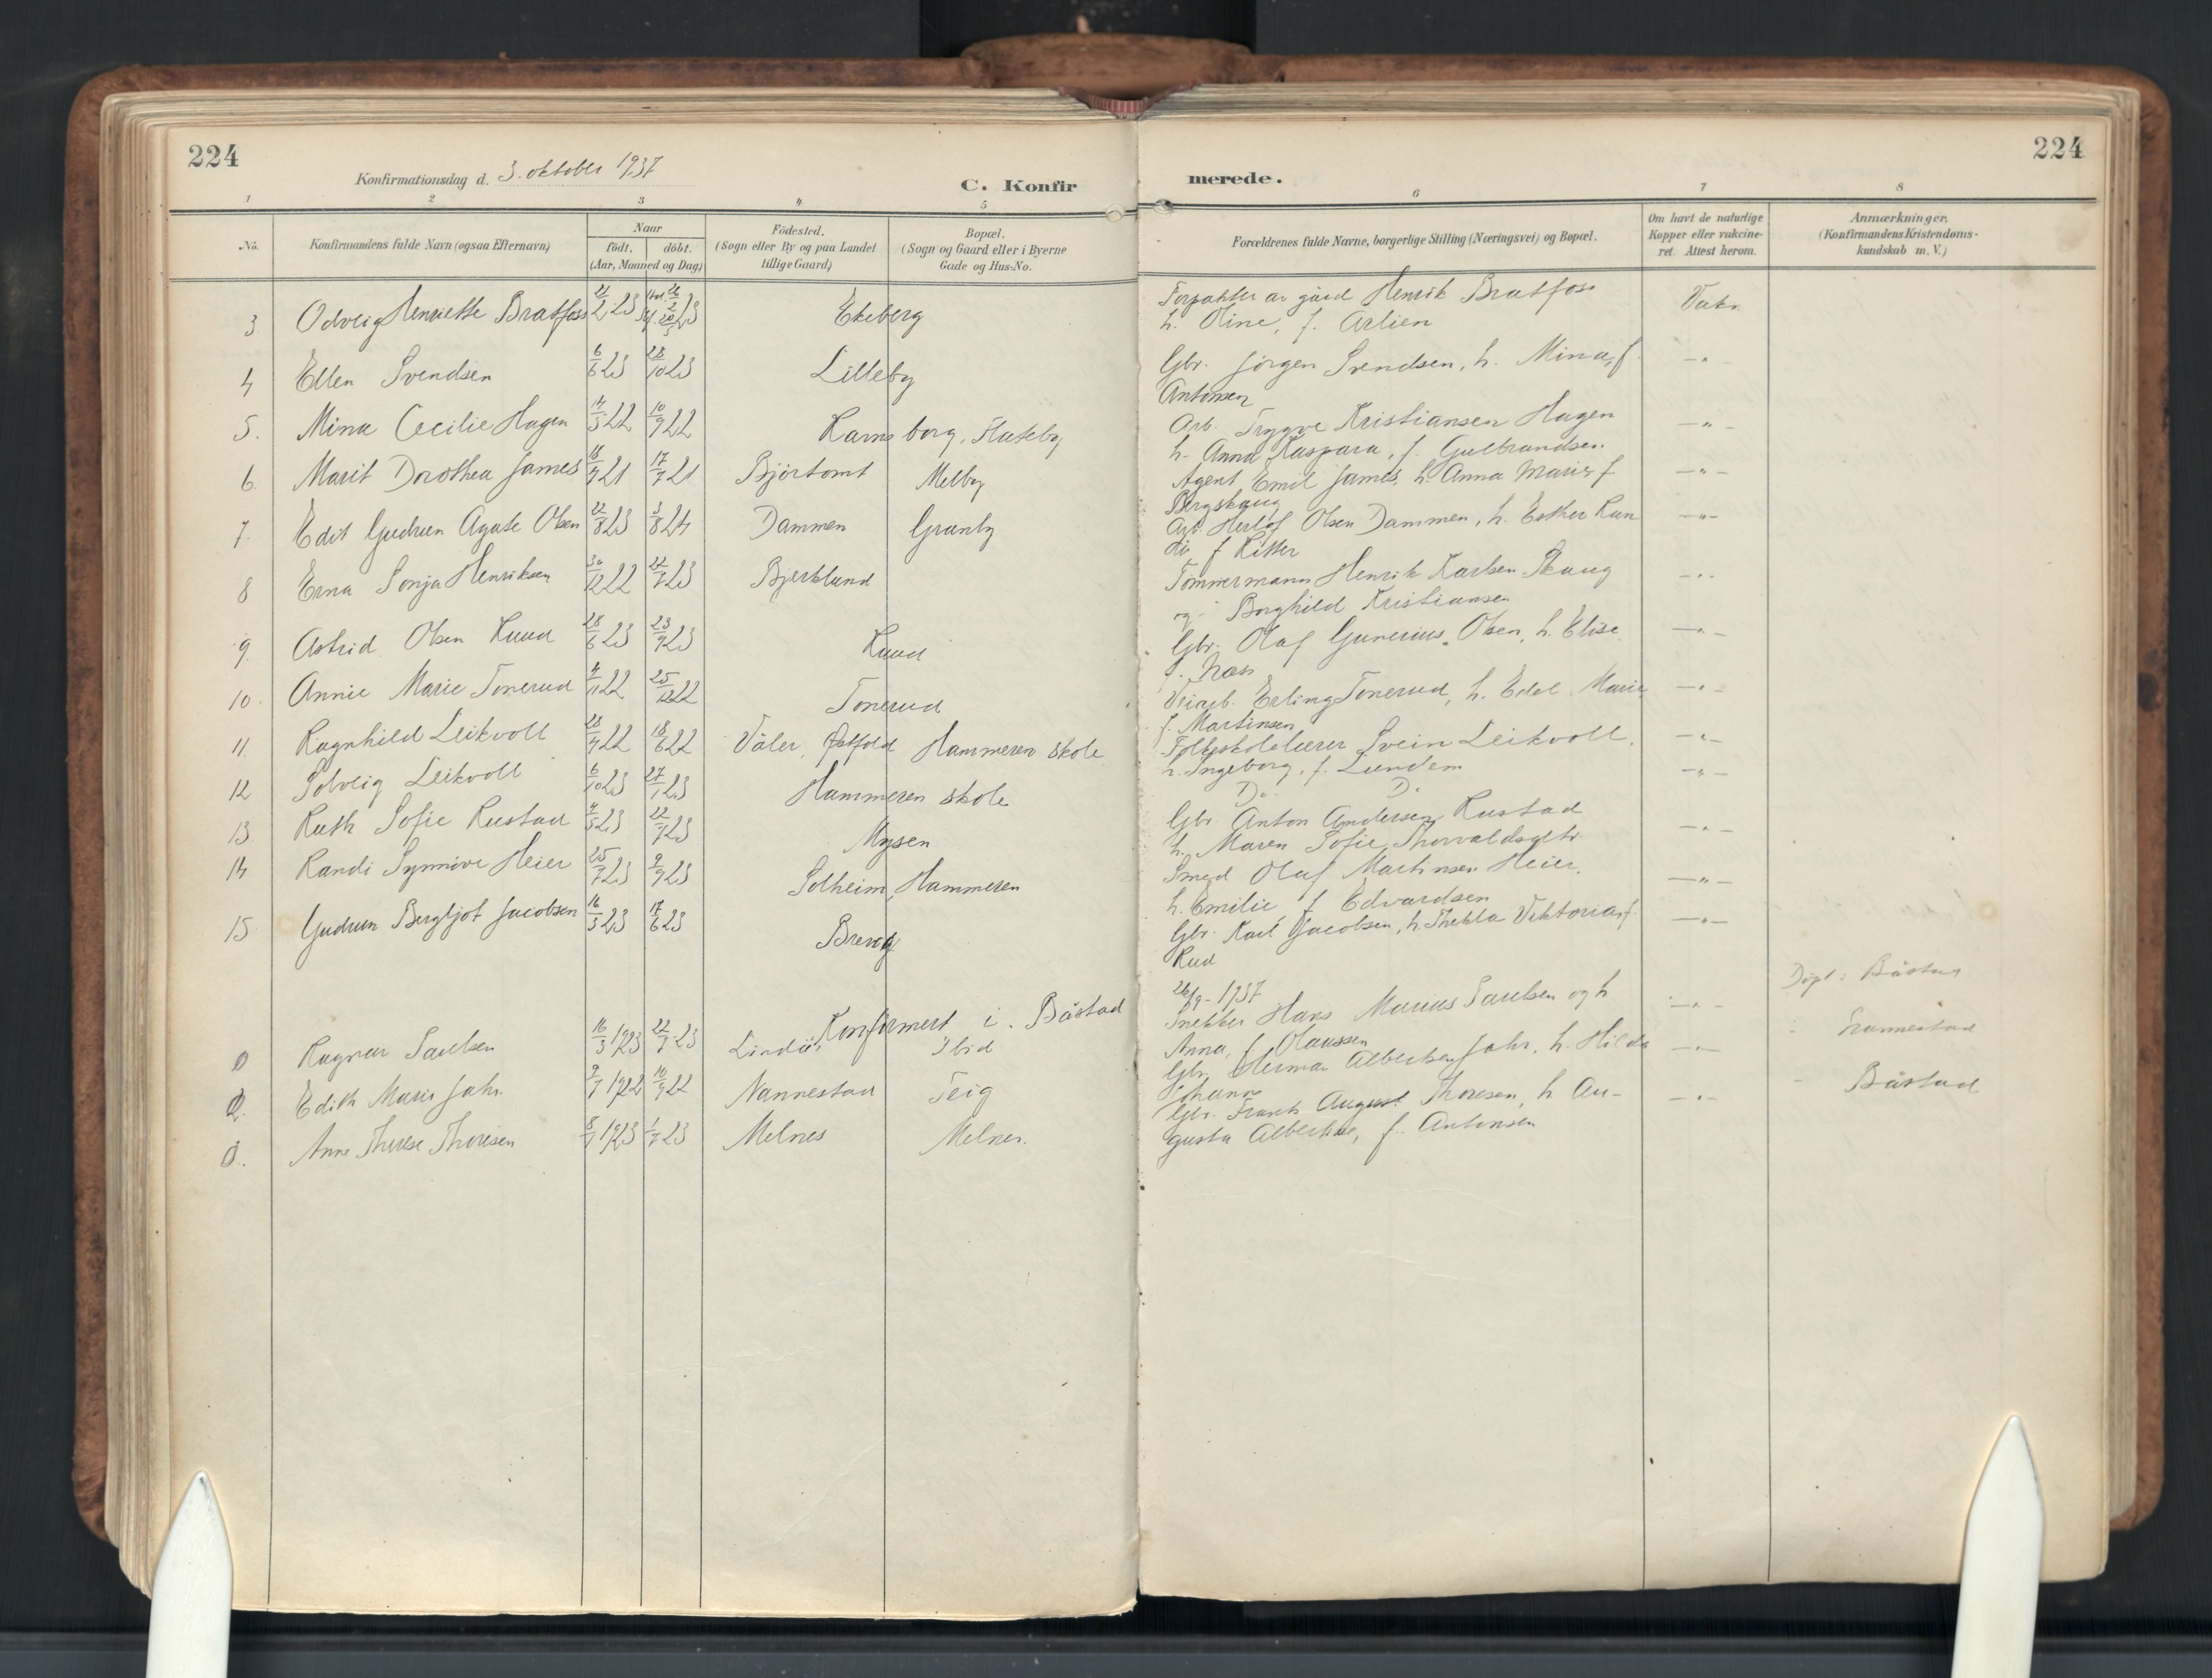 224
Konfirmationsdag d. 3. oktober 1937
C. Konfirmerede.
224
1 2 3 4 5 6 7 8
No.
Konfirmandens fulde Navn (ogsaa Efternavn)
Naar
födt. döbt.
(Aar, Maaned og Dag)
Födested.
(Sogn eller By og paa Landet
tillige Gaard)
Bopæl.
(Sogn og Gaard eller i Byerne
Gade og Hus-No.
Forældrenes fulde Navne, borgerlige Stilling (Næringsvei) og Bopæl.
Om havt de naturlige
Kopper eller vakcine-
ret. Attest herom.
Anmærkninger.
(Konfirmandens Kristendoms-
kundskab m.V.)
3 Odveig Henriette Bratfoss 21/2 23 Ekeberg Forpakter av gård Henrik Bratfoss Vaks.
h. Oline, f. Arlien
4 Ellen Svendsen 6/6 23 28/10 23 Lilleby Gbr. Jørgen Svendsen, h. Mina, f. —"—
Antonsen
5. Mina Cecilie Hagen 14/5 22 10/9 22 Slateby Arb. Trygve Kristiansen Hagen —"—
h. Anna Kaspara, f. Gulbrandsen.
6 Marit Dorothea James 18/4 21 17/7 21 Björtomt Melby Agent Emil James, h. Anna Marie, f —"—
Bergskaug
7. Edit Gudrun Agate Olsen 22/8 23 3/8 24 Dammen Granly Arb. Herlof Olsen Dammen, h. Esther —"—
f Ritter
8 Erna Sonja Henriksen 30/12 22 22/7 23 Bjerklund Tömmermann Henrik Karlsen Skaug —"—
og Borghild Kristiansen
9. Astrid Olsen Ruud 28/6 23 23/9 23 Ruud Gbr. Olaf Gunerius Olsen, h. Elise —"—
f. Næss
10. Annie Marie Tonerud 4/11 22 25/12 22 Tonerud Veiarb. Erling Tonerud, h. Edel Marie —"—
f. Martinsen
11. Ragnhild Leikvoll 28/4 22 18/6 22 Våler, Østfold Hammeren skole Folkeskolelærer Svein Leikvoll. —"—
h. Ingeborg, f. Lundem
12 Solveig Leikvoll 6/10 23 27/1 23 Hammeren skole Do. Do. —"—
13 Ruth Sofie Rustad 4/5 23 22/7 23 Mysen Gbr. Anton Andersen Rustad —"—
h. Maren Sofie Thorvaldsdtr.
14 Randi Synnöve Heier 25/7 23 9/9 23 Solheim, Hammeren Smed Olaf Martinsen Heier. —"—
h. Emilie f Edvardsen
15 Gudrun Bergljot Jacobsen 16/3 23 17/6 23 Brevig Gbr. Karl Jacobsen, h. Thekla Viktoria, f. —"—
Rud
Konfirmert i. Båstad 26/9 - 1937
Ragnar Paulsen 16/3 1923 22/7 23 Ibid Snekker Hans Marius Paulsen og h —"— Döpt: Båstad
Anna, f. Olaussen
2. Edith Marie Jahr. 9/7 1922 10/9 22 Nannestad Teig Gbr. Herman Albertsen Jahr, h. Hilda —"— Nannestad
Johanne
3. Anne Therese Thoresen 8/1 1923 1/7 23 Melnes Melnes. Gbr. Frants August Thoresen, h Au- —"— Båstad
gusta Albertine, f. Antonsen